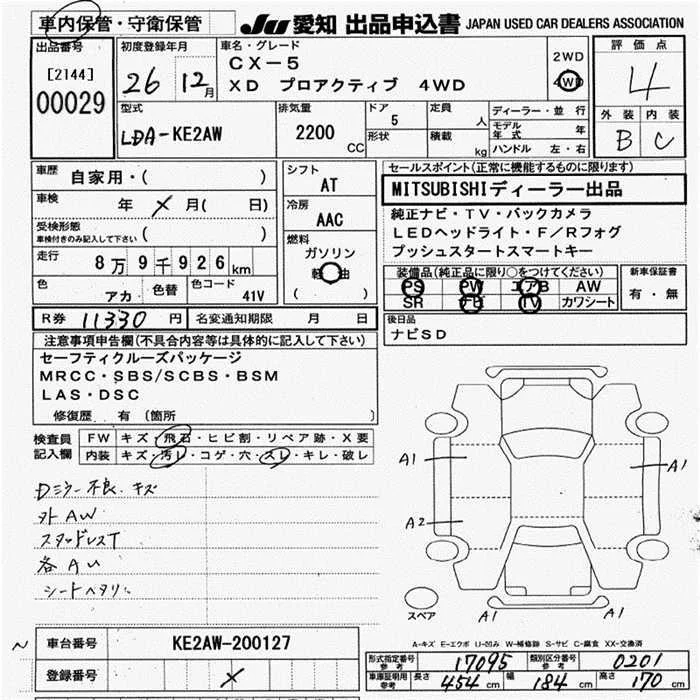 車内保管・守衛保管
JU 愛知 出品申込書 JAPAN USED CAR DEALERS ASSOCIATION
出品番号
[2144]
00029
初度登録年月
26 12月
車名・グレード
CX-5
XD プロアクティブ 4WD
2WD
4WD
評価点
4
外装 内装
B C
型式
LDA-KE2AW
排気量
2200 CC
ドア 5
形状
定員 人
積載 kg
ディーラー・並行
モデル年式 年
ハンドル 左・右
車歴 自家用・( )
車検 年 × 月( 日)
受検形態
車検付きのみ記入して下さい ( )
走行 8万9千926km
色 アカ 色替 色コード 41V
シフト
AT
冷房
AAC
燃料
ガソリン
軽油
( )
セールスポイント(正常に機能するものに限ります)
MITSUBISHIディーラー出品
純正ナビ・TV・バックカメラ
LEDヘッドライト・F/Rフォグ
プッシュスタートスマートキー
装備品(純正品に限り○をつけてください)
PS PW エアB AW
SR ナビ TV カワシート
新車保証書
有・無
R券 11330 円 名変通知期限 月 日
後日品
ナビSD
注意事項申告欄(不具合内容等は具体的に記入して下さい)
セーフティクルーズパッケージ
MRCC・SBS/SCBS・BSM
LAS・DSC
修復歴 有 (箇所 )
検査員記入欄
FW キズ・飛石・ヒビ割・リペア跡・X要
内装 キズ・汚レ・コゲ・穴・スレ・キレ・破レ
Dミラー不良.キズ
外AW
スタッドレスT
各AU
シートヘタリ
A1
A1
A2
A1
A1
スペア
A-キズ E-エクボ U-凹み W-補修跡 S-サビ C-腐食 XX-交換済
車台番号 KE2AW-200127
登録番号 ×
形式指定番号 参考 17095 類別区分番号 参考 0201
車庫証明用 参考 長さ 454 cm 幅 184 cm 高さ 170 cm